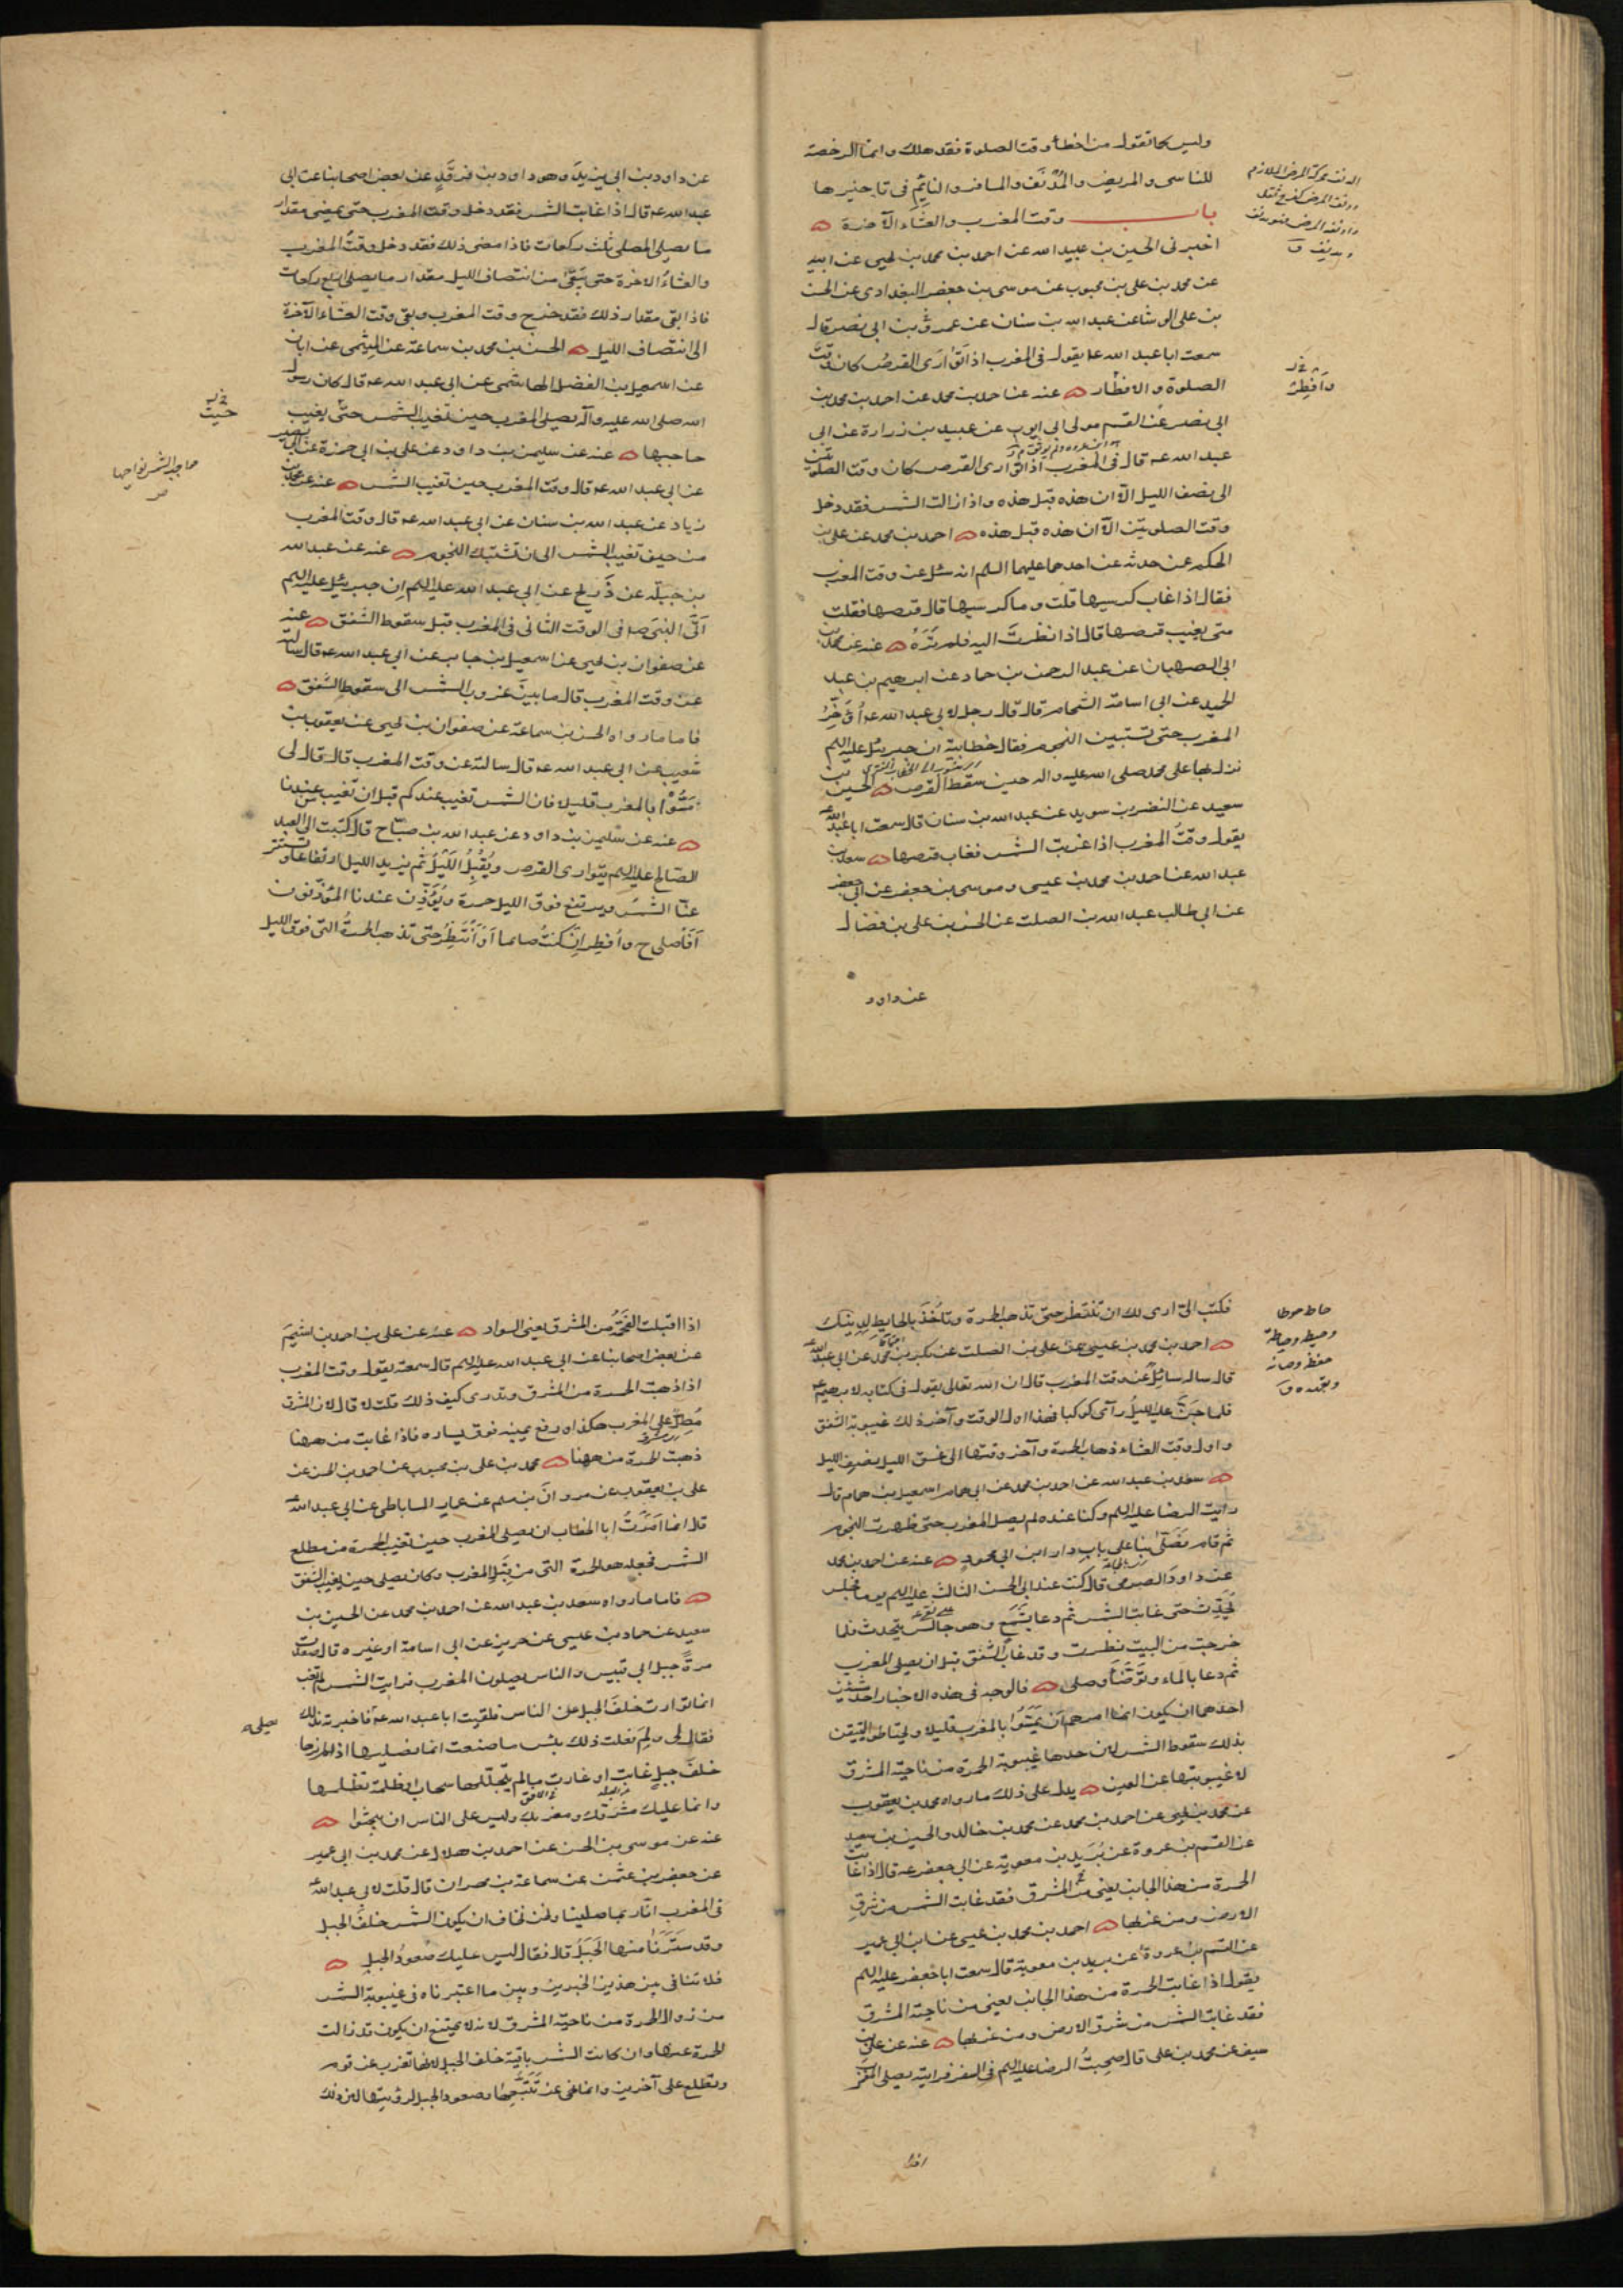 وليس كما تقول من اخطأ وقت الصلوة فقد هلك وانما الرخصة
للناسى والمريض والمُدْنَف والمسافر والنايم فى تاخيرها
باب وقت المغرب والعشاء الآخرة
اخبرنى الحسين بن عبيد الله عن احمد بن محمد بن يحيى عن ابيه
عن محمد بن على بن محبوب عن موسى بن جعفر البغدادى عن الحسن
بن على الوشا عن عبد الله بن سنان عن عمرو بن ابى نصر قال
سمعت ابا عبد الله ع يقول فى المغرب اذا توارى القرص كان وقت
الصلوة والافطار عنه عن احمد بن محمد عن احمد بن محمد بن
ابى نصر عن القسم مولى ابى ايوب عن عبيد بن زرارة عن ابى
عبد الله ع قال فى المغرب اذا توارى القرص كان وقت الصلوتين
الى نصف الليل الّا ان هذه قبل هذه واذا زالت الشمس فقد دخل
وقت الصلوتين الّا ان هذه قبل هذه احمد بن محمد عن على بن
الحكم عمن حدثه عن احدهما عليهما السلم انه سئل عن وقت المغرب
فقال اذا غاب كرسيها قلت وما كرسيها قال قرصها فقلت
متى يغيب قرصها قال اذا نظرتَ اليه فلم تَرَهُ عنه عن محمد بن
ابى الصهبان عن عبد الرحمن بن حماد عن ابرهيم بن عبد
الحميد عن ابى اسامة الشحام قال قال رجل لابى عبد الله ع أُؤَخِّرُ
المغرب حتى تستبين النجوم فقال خطابية ان جبرئيل عليه السلم
نزل بها على محمد صلى الله عليه واله حين سقط القرص الحسين بن
سعيد عن النضر بن سويد عن عبد الله بن سنان قال سمعت ابا عبد الله ع
يقول وقت المغرب اذا غربت الشمس فغاب قرصها سعد بن
عبد الله عن احمد بن محمد بن عيسى وموسى بن جعفر عن ابى جعفر
عن ابى طالب عبد الله بن الصلت عن الحسن بن على بن فضال
عن داود
وأفطِرْ
عن داود بن ابى يزيد وهو داود بن فرقد عن بعض اصحابنا عن ابى
عبد الله ع قال اذا غابت الشمس فقد دخل وقت المغرب حتى يمضى مقدار
ما يصلى المصلى ثلث ركعات فاذا مضى ذلك فقد دخل وقت المغرب
والعشاء الاخرة حتى يبقى من انتصاف الليل مقدار ما يصلى اربع ركعات
فاذا بقى مقدار ذلك فقد خرج وقت المغرب وبقى وقت العشاء الآخرة
الى انتصاف الليل الحسن بن محمد بن سماعة عن الميثمى عن ابان
عن اسمعيل بن الفضل الهاشمى عن ابى عبد الله ع قال كان رسول
الله صلى الله عليه وآله يصلى المغرب حين تغيب الشمس حتى يغيب
حاجبها عنه عن سليمن بن داود عن على بن ابى حمزة عن ابى بصير
عن ابى عبد الله ع قال وقت المغرب حين تغيب الشمس عنه عن محمد بن
زياد عن عبد الله بن سنان عن ابى عبد الله ع قال وقت المغرب
من حين تغيب الشمس الى ان تشتبك النجوم عنه عن عبد الله
بن جبلة عن ذريح عن ابى عبد الله عليه السلم ان جبرئيل عليه السلم
اتى النبى ص فى الوقت الثانى فى المغرب قبل سقوط الشفق عنه
عن صفوان بن يحيى عن اسمعيل بن جابر عن ابى عبد الله ع قال سالته
عن وقت المغرب قال ما بين غروب الشمس الى سقوط الشفق
فاما ما رواه الحسن بن سماعة عن صفوان بن يحيى عن يعقوب بن
شعيب عن ابى عبد الله ع قال سالته عن وقت المغرب قال قال لى
مَسُّوا بالمغرب قليلا فان الشمس تغيب عندكم قبل ان تغيب من عندنا
عنه عن سليمن بن داود عن عبد الله بن صباح قال كتبت الى العبد
الصالح عليه السلم يتوارى القرص ويُقبِلُ الليلُ ثم يزيد الليل ارتفاعا وتستتر
عنّا الشمس ويرتفع فوق الليل حمرة ويُؤَذِّن عندنا المؤذّنون
أفأصلى ح وأفطِر ان كنتُ صائما أو أنتظِر حتى تذهب الحمرةُ التى فوق الليل
خ ر
حيث
حاجب الشمس نواحيها
ص
فكتب الىّ ارى لك ان تنتظر حتى تذهب الحمرة وتأخذَ بالحايط لدينك
احمد بن محمد بن عيسى عن على بن الصلت عن بكر بن محمد عن ابى عبد الله ع
قال ساله سائلٌ عن وقت المغرب قال ان الله تعالى يقول فى كتابه لابرهيم ع
فلما جن عليه الليلُ رآى كوكبا فهذا اول الوقت وآخر ذلك غيبوبة الشفق
واول وقت العشاء ذهاب الحمرة وآخر وقتها الى غسق الليل نصف الليل
سعد بن عبد الله عن احمد بن محمد عن ابى همام اسمعيل بن همام قال
رايت الرضا عليه السلم وكنا عنده لم يصل المغرب حتى ظهرت النجوم
ثم قام فصَلّى بنا على باب دار ابن ابى محمود عنه عن احمد بن محمد
عن داود الصرمى قال كنت عند ابى الحسن الثالث عليه السلم يوما فجلس
يُحَدِّث حتى غابت الشمس ثم دعا بشَمَع وهو جالس يتحدث فلما
خرجت من البيت نظرت وقد غاب الشفق قبل ان يصلى المغرب
ثم دعا بالماء وتَوَضَّأ وصلى فالوجه فى هذه الاخبار احد شيئين
احدهما ان يكون انما امرهم ان يمسّوا بالمغرب قليلا ويحتاطوا لتيقن
بذلك سقوط الشمس لان حدها غيبوبة الحمرة من ناحية المشرق
لا غيبوبتها عن العين يدل على ذلك ما رواه محمد بن يعقوب
عن محمد بن يحيى عن احمد بن محمد عن محمد بن خالد والحسين بن سعيد
عن القسم بن عروة عن بُرَيد بن معوية عن ابى جعفر ع قال اذا غابت
الحمرة من هذا الجانب يعنى من المشرق فقد غابت الشمس من شرق
الارض ومن غربها احمد بن محمد بن عيسى عن ابن ابى عمير
عن القسم بن عروة عن بريد بن معوية قال سمعت ابا جعفر عليه السلم
يقول اذا غابت الحمرة من هذا الجانب يعنى من ناحية المشرق
فقد غابت الشمس من شرق الارض ومن غربها عنه عن على بن
سيف عن محمد بن على قال صحبتُ الرضا عليه السلم فى السفر فرايته يصلى المغرب
اذا
حاط حوطا
وحيطة وحياطة
حفظه وصانه
وتعهده ق
اذا اقبلت الفَحْمَةُ من المشرق يعنى السواد عنه عن على بن احمد بن اشيَم
عن بعض اصحابنا عن ابى عبد الله عليه السلم قال سمعته يقول وقت المغرب
اذا ذهبت الحمرة من المشرق وتدرى كيف ذلك قلت لا قال لان المشرق
مُطِلٌّ على المغرب هكذا ورفع يمينه فوق يساره فاذا غابت من ههنا
ذهبت الحمرة من ههنا محمد بن على بن محبوب عن احمد بن الحسن عن
على بن يعقوب عن مروان بن مسلم عن عمار الساباطى عن ابى عبد الله ع
قال انما امَرْتُ ابا الخطاب ان يصلى المغرب حين تغيب الحمرة من مطلع
الشمس فجعله هو الحمرة التى من قِبَل المغرب وكان يصلى حين يغيب الشفق
فاما ما رواه سعد بن عبد الله عن احمد بن محمد عن الحسين بن
سعيد عن حماد بن عيسى عن حريز عن ابى اسامة او غيره قال صعدت
مرةً جبل ابى قبيس والناس يصلون المغرب فرايت الشمس لم تغب
انما توارت خلف الجبل عن الناس فلقيت ابا عبد الله ع فاخبرته بذلك
فقال لى ولِمَ فعلت ذلك بئس ما صنعت انما نصليها اذا لم نرها
خلف جبل غابت او غارت ما لم يتجلّلها سحاب او ظلمة تظلها
وانما عليك مشرقك ومغربك وليس على الناس ان يبحثوا
عنه عن موسى بن الحسن عن احمد بن هلال عن محمد بن ابى عمير
عن جعفر بن عثمن عن سماعة بن مهران قال قلت لابى عبد الله ع
فى المغرب انّا ربما صلينا ونحن نخاف ان يكون الشمس خلف الجبل
وقد سترَنا منها الجَبَلُ قال فقال ليس عليك صعودُ الجبل
فلا تنافى بين هذين الخبرين وبين ما اعتبرناه فى غيبوبة الشمس
من زوال الحمرة من ناحية المشرق لانه لا يمتنع ان يكون قد زالت
الحمرة عنها وان كانت الشمس باقية خلف الجبل لانها تغرب عن قوم
وتطلع على آخرين وانما نهى عن تَتَبُّعِها وصعود الجبل لرؤيتها لان ذلك